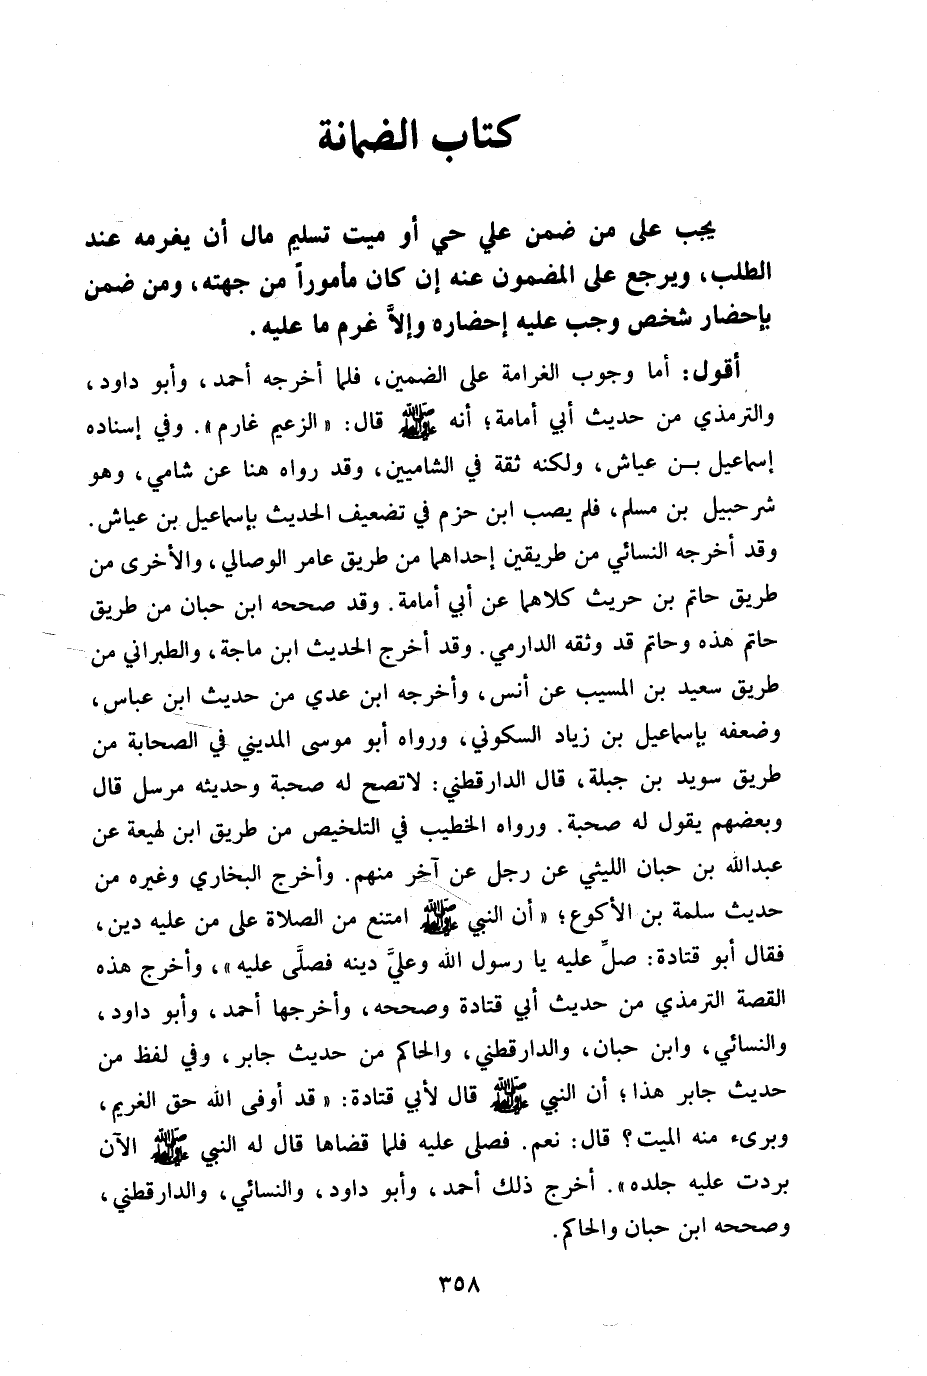 كتاب الضمانة
يجب على من ضمن علي حي أو ميت تسليم مال أن يغرمه عند
الطلب، ويرجع على المضمون عنه إن كان مأموراً من جهته، ومن ضمن
بإحضار شخص وجب عليه إحضاره وإلاَّ غرم ما عليه.
أقول: أما وجوب الغرامة على الضمين، فلما أخرجه أحمد، وأبو داود،
والترمذي من حديث أبي أمامة؛ أنه ﷺ قال: «الزعيم غارم». وفي إسناده
إسماعيل بـن عياش، ولكنه ثقة في الشاميين، وقد رواه هنا عن شامي، وهو
شرحبيل بن مسلم، فلم يصب ابن حزم في تضعيف الحديث بإسماعيل بن عياش.
وقد أخرجه النسائي من طريقين إحداهما من طريق عامر الوصالي، والأخرى من
طريق حاتم بن حريث كلاهما عن أبي أمامة. وقد صححه ابن حبان من طريق
حاتم هذه وحاتم قد وثقه الدارمي. وقد أخرج الحديث ابن ماجة، والطبراني من
طريق سعيد بن المسيب عن أنس، وأخرجه ابن عدي من حديث ابن عباس،
وضعفه بإسماعيل بن زياد السكوني، ورواه أبو موسى المديني في الصحابة من
طريق سويد بن جبلة، قال الدارقطني: لاتصح له صحبة وحديثه مرسل قال
وبعضهم يقول له صحبة. ورواه الخطيب في التلخيص من طريق ابن لهيعة عن
عبدالله بن حبان الليثي عن رجل عن آخر منهم. وأخرج البخاري وغيره من
حديث سلمة بن الأكوع؛ «أن النبي ﷺ امتنع من الصلاة على من عليه دين،
فقال أبو قتادة: صلِّ عليه يا رسول الله وعليَّ دينه فصلَّى عليه»، وأخرج هذه
القصة الترمذي من حديث أبي قتادة وصححه، وأخرجها أحمد، وأبو داود،
والنسائي، وابن حبان، والدارقطني، والحاكم من حديث جابر، وفي لفظ من
حديث جابر هذا؛ أن النبي ﷺ قال لأبي قتادة: «قد أوفى الله حق الغريم،
وبرىء منه الميت؟ قال: نعم. فصلى عليه فلما قضاها قال له النبي ﷺ الآن
بردت عليه جلده». أخرج ذلك أحمد، وأبو داود، والنسائي، والدارقطني،
وصححه ابن حبان والحاكم.
٣٥٨